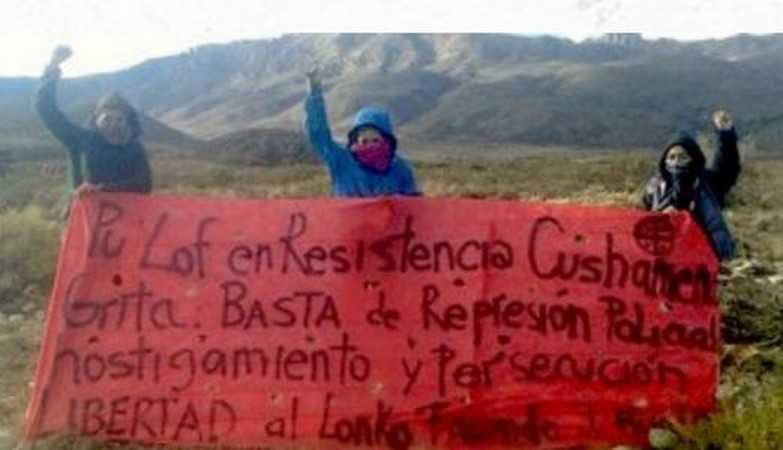 Pu Lof en Resistencia Cushamen
Grita: BASTA de Represión Policial
hostigamiento y Persecución
LIBERTAD al Lonko Facundo J.